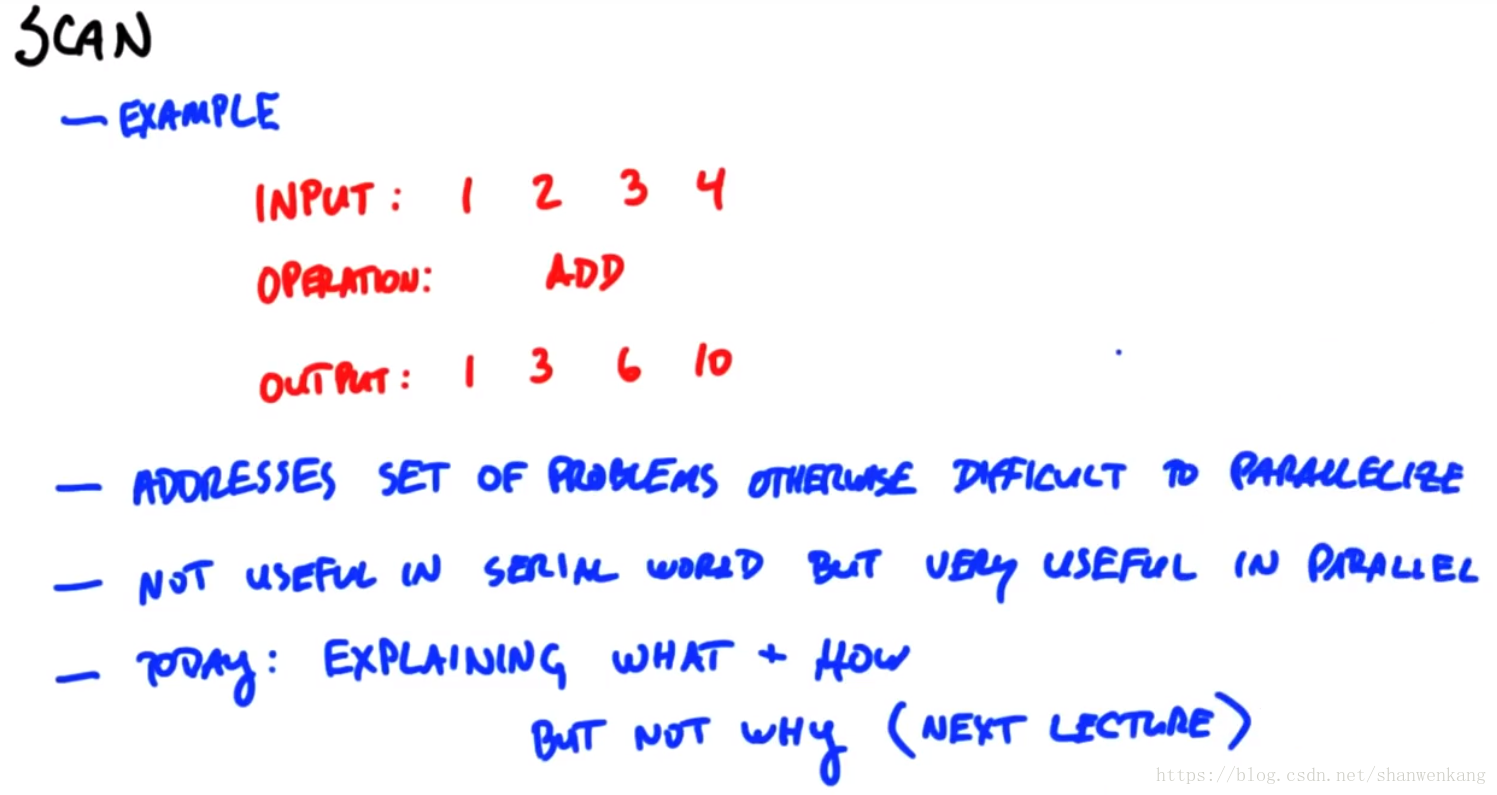 SCAN
— EXAMPLE
INPUT: 1 2 3 4
OPERATION: ADD
OUTPUT: 1 3 6 10
— ADDRESSES SET OF PROBLEMS OTHERWISE DIFFICULT TO PARALLELIZE
— NOT USEFUL IN SERIAL WORLD BUT VERY USEFUL IN PARALLEL
— TODAY: EXPLAINING WHAT + HOW
BUT NOT WHY (NEXT LECTURE)
https://blog.csdn.net/shanwenkang